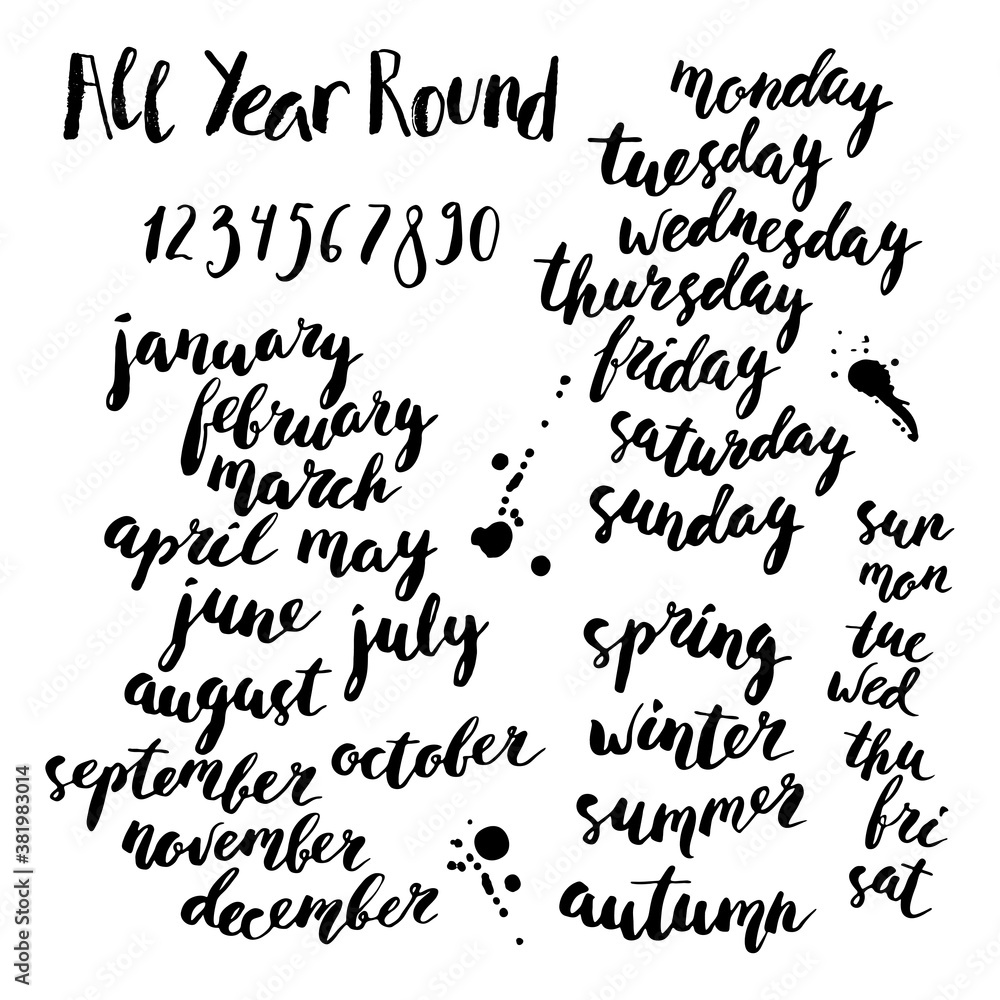 All Year Round
1234567890
january
february
march
april may
june july
august
september october
november
december
monday
tuesday
wednesday
thursday
friday
saturday
sunday
spring
winter
summer
autumn
sun
mon
tue
wed
thu
fri
sat
Adobe Stock | #381983014